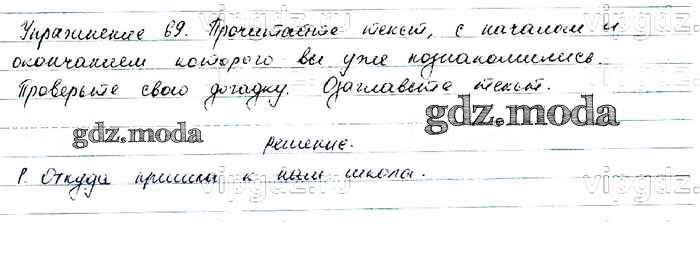 Упражнение 69. Прочитайте текст, с началом и
окончанием которого вы уже познакомились.
Проверьте свою догадку. Озаглавьте текст.
gdz.moda
gdz.moda
Решение.
1. Откуда пришла к нам школа.
vipgdz.ru